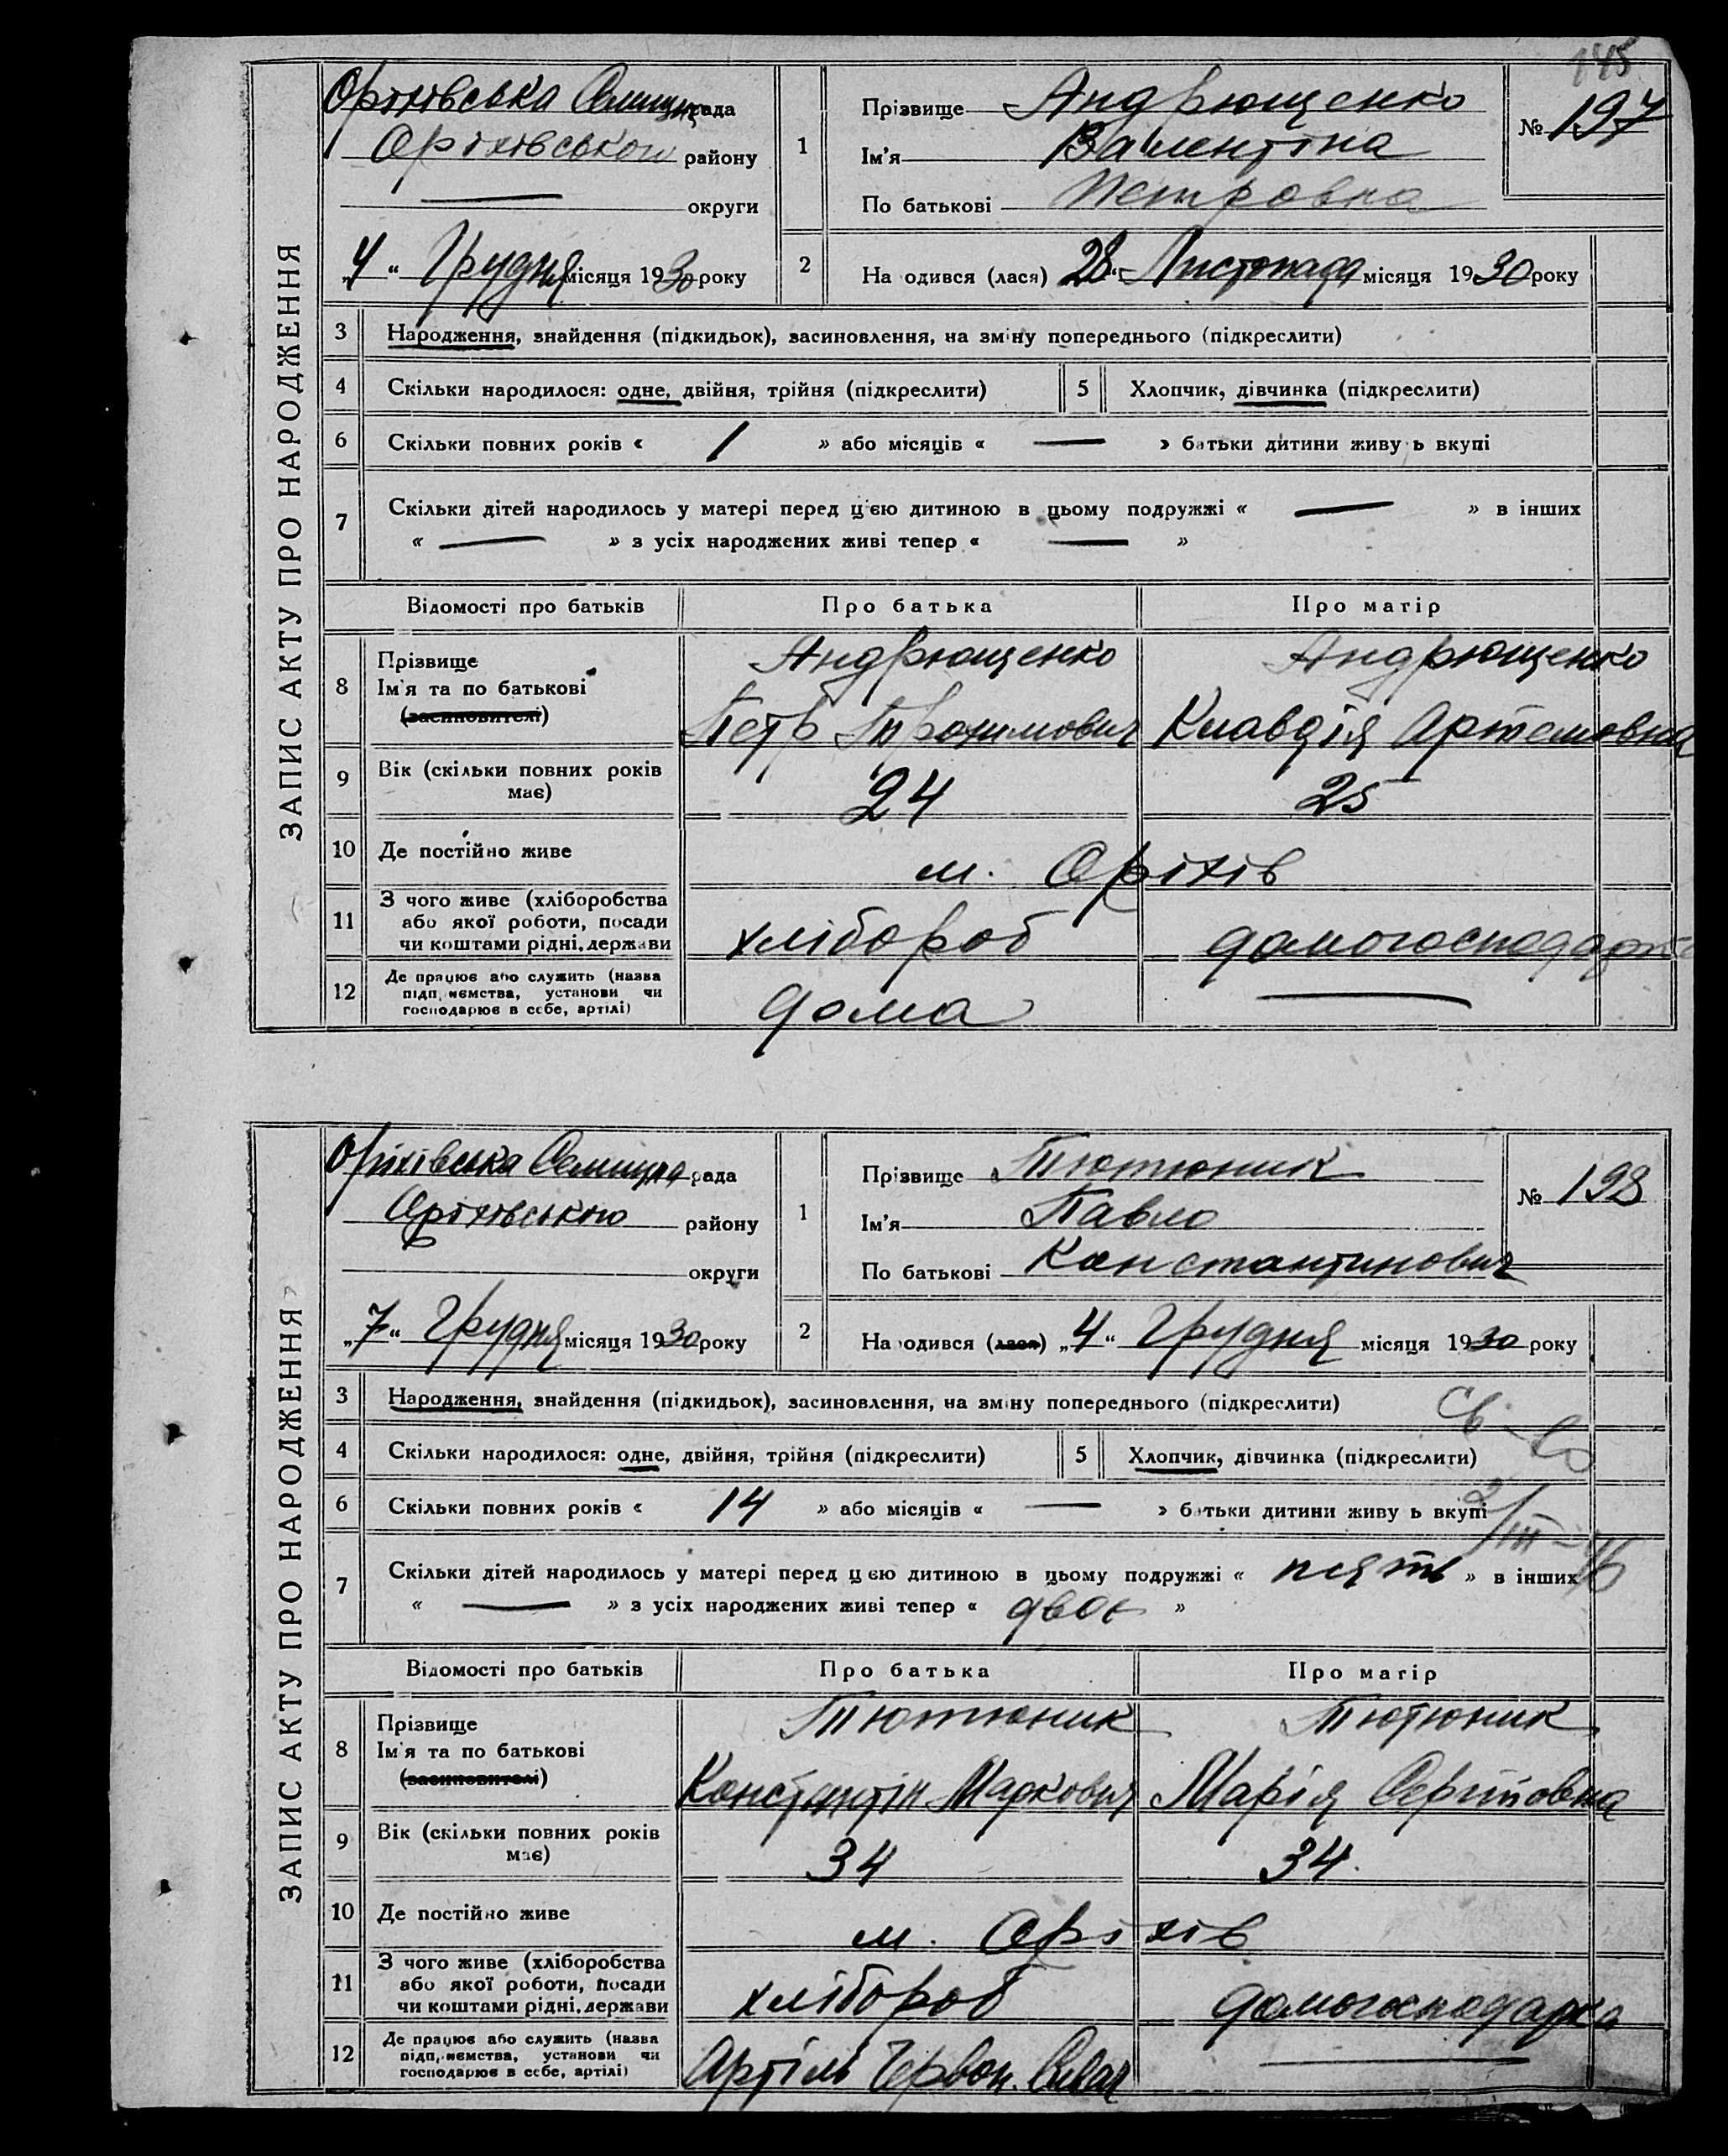 145
ЗАПИС АКТУ ПРО НАРОДЖЕННЯ
Оріхівська Селищна рада
Оріхівського району
округи
„4“ Грудня місяця 1930 року
1
Прізвище Андрющенко
Ім'я Валентіна
По батькові Петровна
№ 197
2
На одився (лася) 28“ Листопада місяця 1930 року
3 Народження, знайдення (підкидьок), засиновлення, на зміну попереднього (підкреслити)
4 Скільки народилося: одне, двійня, трійня (підкреслити) 5 Хлопчик, дівчинка (підкреслити)
6 Скільки повних років « 1 » або місяців « — » батьки дитини живу ь вкупі
7 Скільки дітей народилось у матері перед цією дитиною в цьому подружжі « — » в інших
« — » з усіх народжених живі тепер « — »
Відомості про батьків Про батька Про матір
8 Прізвище Андрющенко Андрющенко
Ім'я та по батькові Петр Трохимович Клавдія Артемовна
(засиновителі)
9 Вік (скільки повних років має) 24 25
10 Де постійно живе м. Оріхів
11 З чого живе (хліборобства
або якої роботи, посади
чи коштами рідні, держави хлібороб домогосподарка
12 Де працює або служить (назва
підп иємства, установи чи
господарює в себе, артілі) дома —
ЗАПИС АКТУ ПРО НАРОДЖЕННЯ
Оріхівська Селищна рада
Оріхівського району
округи
„7“ Грудня місяця 1930 року
1
Прізвище Тютюник
Ім'я Павло
По батькові Константинович
№ 198
2
На одився (лася) „4“ Грудня місяця 1930 року
3 Народження, знайдення (підкидьок), засиновлення, на зміну попереднього (підкреслити)
св-во
4 Скільки народилося: одне, двійня, трійня (підкреслити) 5 Хлопчик, дівчинка (підкреслити)
6 Скільки повних років « 14 » або місяців « — » батьки дитини живу ь вкупі
7 Скільки дітей народилось у матері перед цією дитиною в цьому подружжі « пять » в інших
« — » з усіх народжених живі тепер « двоє »
Відомості про батьків Про батька Про матір
8 Прізвище Тютюник Тютюник
Ім'я та по батькові Константін Маркович Марія Сергіївна
(засиновителі)
9 Вік (скільки повних років має) 34 34
10 Де постійно живе м. Оріхів
11 З чого живе (хліборобства
або якої роботи, посади
чи коштами рідні, держави хлібороб домогосподарка
12 Де працює або служить (назва
підп иємства, установи чи
господарює в себе, артілі) Артіль Червон. —